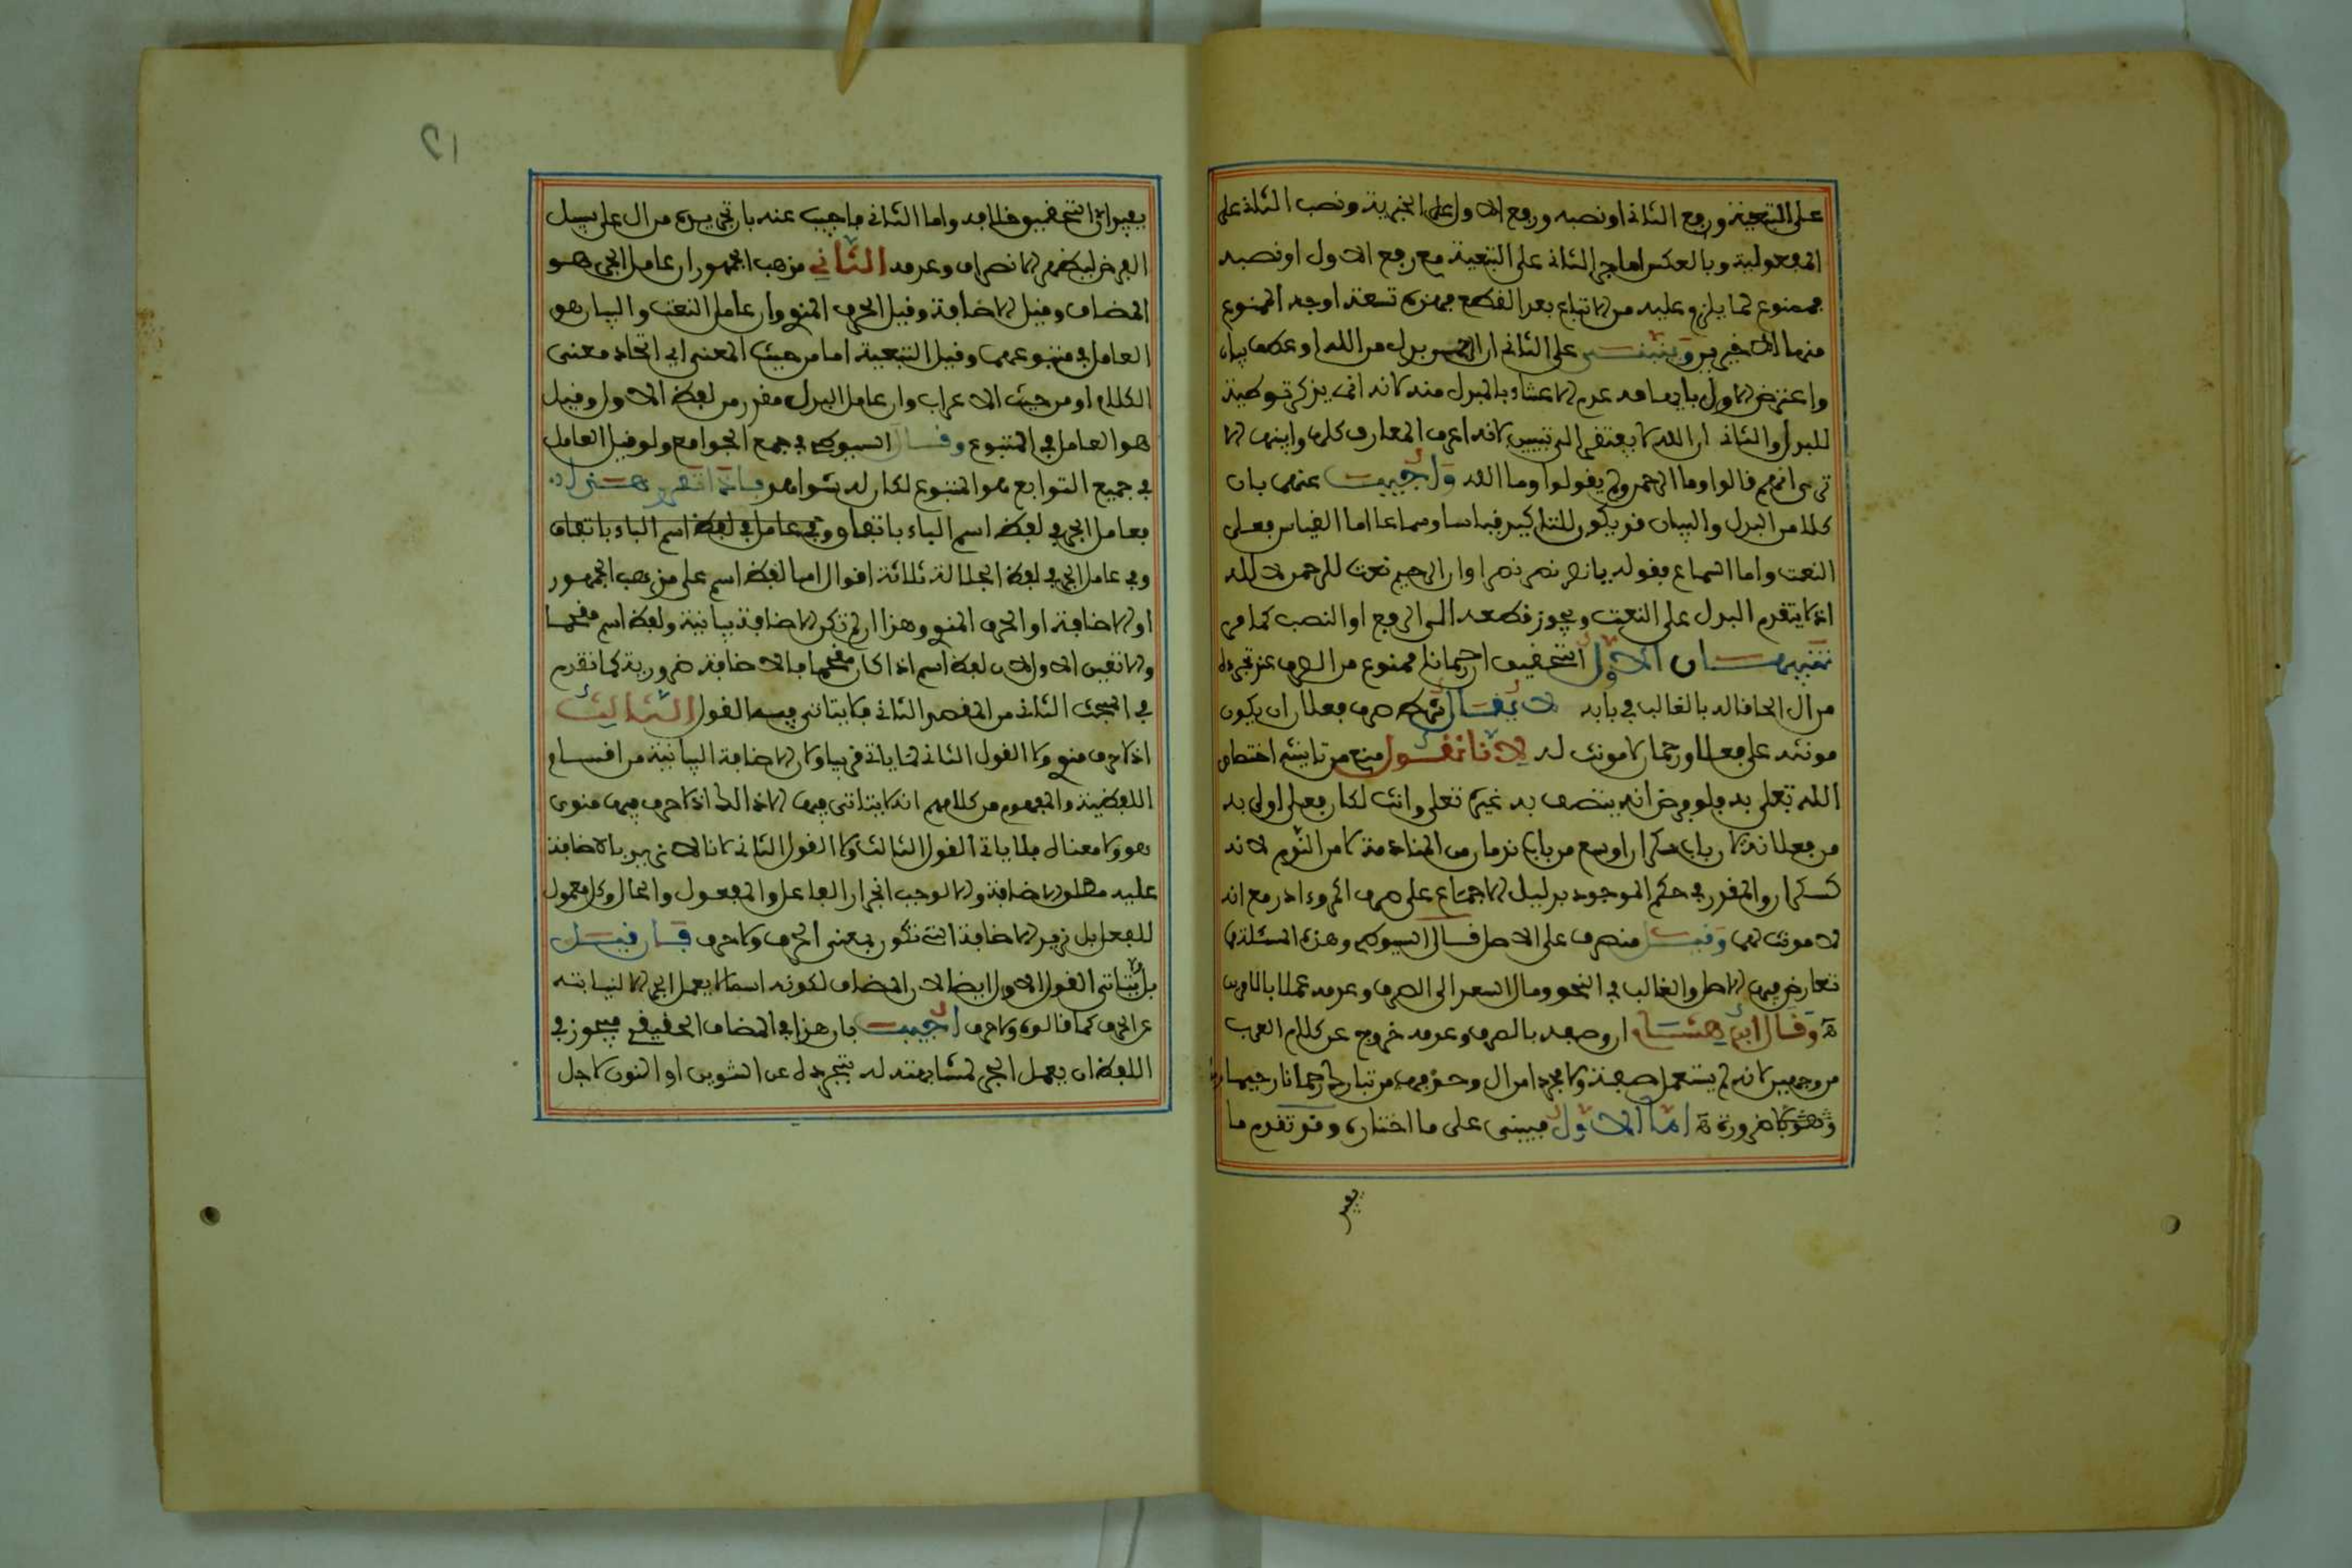 على التبعية ورفع الثانى او نصبه ورفع الاول على الخبرية ونصب الثلثة على
المفعولية وبالعكس اما جر الثانى على التبعية مع رفع الاول او نصبه
فممنوع لما يلزم عليه من الاتباع بعد القطع فهذه تسعة اوجه الممنوع
منها الاخيرين وينبنى على الثانى ان الرحمن بدل من الله او عطف بيان
واعترض الاول بان فيه عدم الاعتناء بالمبدل منه لانه انما يذكر توطية
للبدل والثانى ان الله لا يفتقر الى تبيين لانه اعرف المعارف كلها وابينها الا
ترى انهم قالوا وما الرحمن ولم يقولوا وما الله واجيب عنهما بان
كلا من البدل والبيان قد يكون للتاكيد قياسا وسماعا اما القياس فعلى
النعت واما السماع فقوله يا نصر نصر نصرا وان الرحيم نعت للرحمن لا لله
اذ لا يتقدم البدل على النعت ويجوز قطعه الى الرفع او النصب كما مر
تنبيهات الاول التحقيق ان رحمانا ممنوع من الصرف عند تجرده
من ال الحاقا له بالغالب في بابه لا يقال شرط صرف فعلان ان يكون
مونثه على فعلا ورحمان لا مونث له لانا نقول منع من تانيثه اختصاص
الله تعلى به فلو فرض انه يتصف به غيره تعلى وانث لكان فعلى اولى به
من فعلانة لان باب سكران اوسع من باب ندمان من المنادمة لا من الندم لانه
كسكران والمقدر في حكم الموجود بدليل الاجماع على صرف اكمر وءادر مع انه
لا مونث لهما وقيل منصرف على الاصل قال السيوطي وهذه المسئلة مما
تعارض فيها الاصل والغالب في النحو ومال السعد الى الصرف وعدمه عملا بالامرين
ه وقال ابن هشام ان وصفه بالصرف وعدمه خروج عن كلام العرب
من وجهين لانه لم يستعمل صفة ولا مجردا من ال وحذفها من تبارك رحمانا رحيما
وشهه ضرورة ه اما الاول فيبنى على ما اختاره وقد تقدم ما
يفيد
يفيد ان التحقيق خلافه واما الثانى فاجيب عنه بان تجريده من ال على سبيل
الفرض ليظهر الانصراف وعدمه الثاني مذهب الجمهور ان عامل الجر هو
المضاف وقيل الاضافة وقيل الحرف المنوي وان عامل النعت والبيان هو
العامل في متبوعهما وقيل التبعية اما من حيث المعنى اي اتحاد معنى
الكلام او من حيث الاعراب وان عامل البدل مقدر من لفظ الاول وقيل
هو العامل في المتبوع وقال السيوطي في جمع الجوامع ولو قيل العامل
في جميع التوابع هو المتبوع لكان له شواهد فاذا تقرر هذا
فعامل الجر في لفظ اسم الباء باتفاق وفي عامل في لفظ اسم الباء باتفاق
وفي عامل الجر في لفظ الجلالة ثلاثة اقوال اما لفظ اسم على مذهب الجمهور
او الاضافة او الحرف المنوي وهذا ان لم تكن الاضافة بيانية ولفظ اسم مقحما
والا تعين الاول لان لفظ اسم اذا كان مقحما فالاضافة ضرورية كما تقدم
في المبحث الثانى من المقصد الثانى فلا يتاتى فيه القول الثالث
اذ لا حرف منوي ولا القول الثانى لما ياتي قريبا وكان الاضافة البيانية من اقسام
اللفظية والمفهوم من كلامهم انه لا يتاتى فيها الا ذاك اذ لا حرف فيها منوى
هو ولا معناه فلا ياتي القول الثالث ولا القول الثانى لانا لا نريد بالاضافة
عليه مطلق الاضافة والا لوجب انجرار الفاعل والمفعول والحال وكل معمول
للفعل بل نريد الاضافة التى تكون بمعنى الحرف ولا حرف فان قيل
بل لا يتاتى القول الاول ايضا لان المضاف لكونه اسما لا يعمل الجر الا لنيابته
عن الحرف كما قالوه ولا حرف اجيب بان هذا في المضاف الحقيقى فيجوز في
اللفظى ان يعمل الجر لمشابهته له بتجرده عن التنوين او النون لاجل